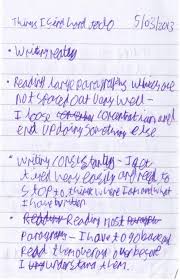 Things I find hard to do 5/03/2013
• Writing neatly
• Reading large paragraphs which are
not spaced out very well –
I loose concentration and
end up doing something else
• writing consistantly – I get
tired very easily and need to
stop to think where I am what
I have written
• Reading most
Paragraphs – I have to go back and
Read them over and over because
I understand them.